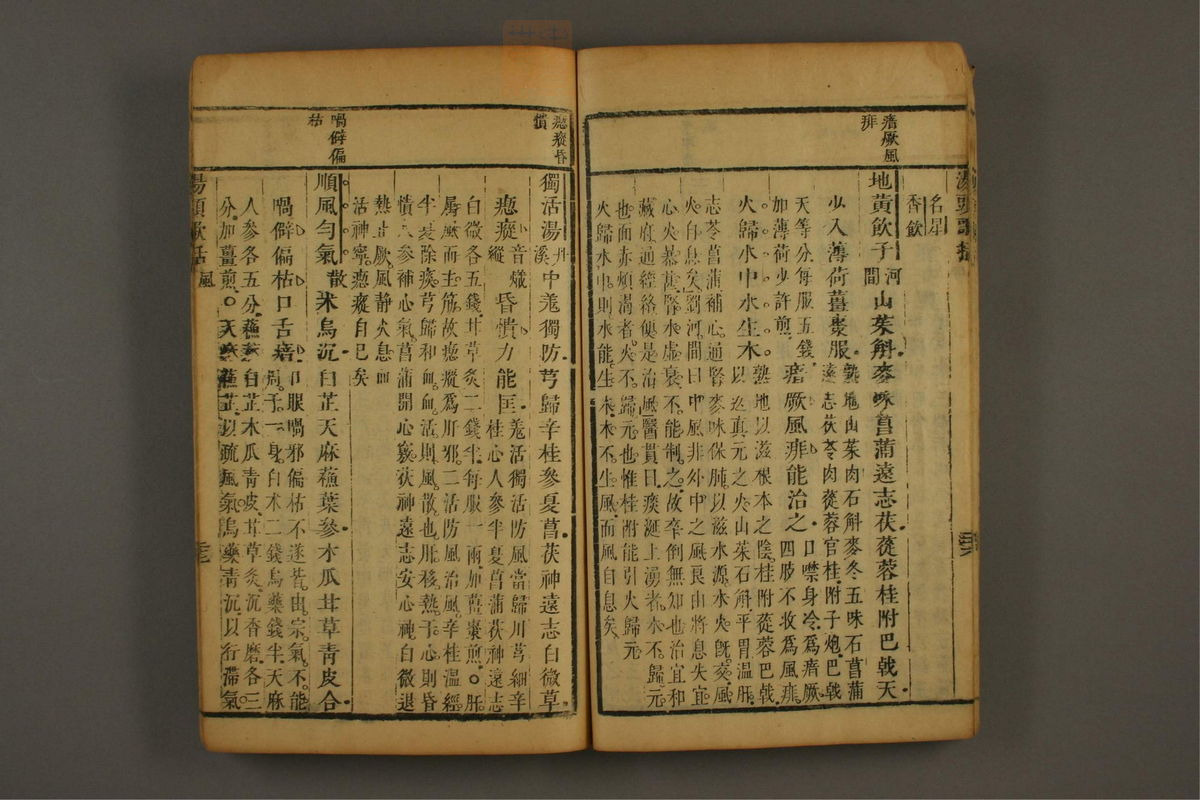 湯頭歌括
名星
香飲
瘖厥風
痱
地黃飲子河間山茱斛麥味菖蒲遠志茯蓯蓉桂附巴戟天
少入薄荷薑棗服
熟地山茱肉石斛麥冬五味石菖蒲
遠志茯苓肉蓯蓉官桂附子炮巴戟
天等分每服五錢
加薄荷少許煎
瘖厥風痱能治之
口噤身冷爲瘖厥
四肢不收爲風痱
火歸水中水生木
熟地以滋根本之陰桂附蓯蓉巴戟
以返真元之火山茱石斛平胃溫肝
志苓菖蒲補心通腎麥味保肺以滋水源水火旣交風
火自息矣劉河間曰中風非外中之風良由將息失宜
心火暴甚腎水虛衰不能制之故卒倒無知也治宜和
藏府通經絡便是治風醫貫曰痰涎上湧者水不歸元
也面赤煩渴者火不歸元也惟桂附能引火歸元
火歸水中則水能生木木不生風而風自息矣
瘛瘲昏
憒
獨活湯丹溪中羌獨防芎歸辛桂參夏菖茯神遠志白微草
瘛瘲音熾縱昏憒力能匡
羌活獨活防風當歸川芎細辛
桂心人參半夏菖蒲茯神遠志
白微各五錢甘草炙二錢半每服一兩加薑棗煎○肝
屬風而主筋故瘛瘲爲肝邪二活防風治風辛桂溫經
半夏除痰芎歸和血血活則風散也肝移熱于心則昏
憒人參補心氣菖蒲開心竅茯神遠志安心神白微退
熱止厥風静火息而
活神寧瘛瘲自已矣
喎僻偏
枯
順風勻氣散朮烏沉白芷天麻蘇葉參木瓜甘草青皮合
喎僻偏枯口舌瘖
口眼喎邪偏枯不遂皆由宗氣不能
周于一身白朮二錢烏藥錢半天麻
人參各五分蘇葉白芷木瓜青皮甘草炙沉香磨各三
分加薑煎○天麻蘇芷以疏風氣烏藥青沉以行滯氣
湯頭歌括 風